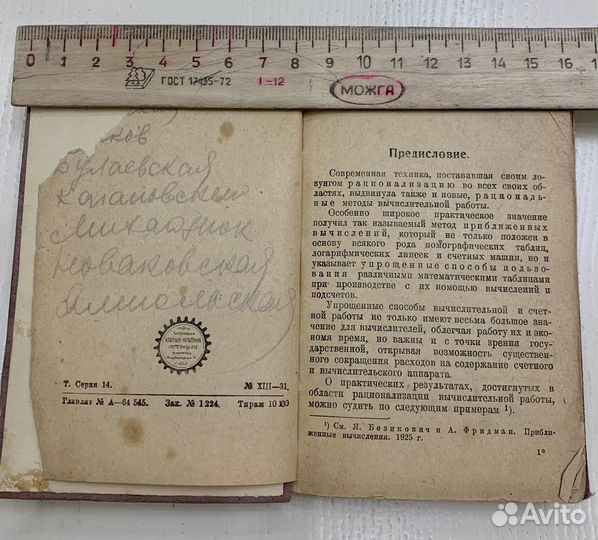 0 1 2 3 4 5 6 7 8 9 10 11 12 13 14 15 16
ГОСТ 17435-72 1-12
МОЖГА
Булаевская
Новаковская
Т. Серия 14. № XIII—31.
Главлит № А—64 545. Зак. № 1224. Тираж 10 100
Предисловие.
Современная техника, поставившая своим ло-
зунгом рационализацию во всех своих об-
ластях, выдвинула также и новые, рациональ-
ные методы вычислительной работы.
Особенно широкое практическое значение
получил так называемый метод приближенных
вычислений, который не только положен в
основу всякого рода номографических таблиц,
логарифмических линеек и счетных машин, но и
указывает упрощенные способы пользо-
вания различными математическими таблицами
при производстве с их помощью вычислений и
подсчетов.
Упрощенные способы вычислительной и счет-
ной работы не только имеют весьма большое зна-
чение для вычислителей, облегчая работу их и эко-
номя время, но важны и с точки зрения го-
сударственной, открывая возможность существен-
ного сокращения расходов на содержание счетного
и вычислительного аппарата.
О практических результатах, достигнутых в
области рационализации вычислительной работы,
можно судить по следующим примерам ¹).
¹) См. Я. Безикович и А. Фридман. Прибли-
женные вычисления. 1925 г.
1*
Avito